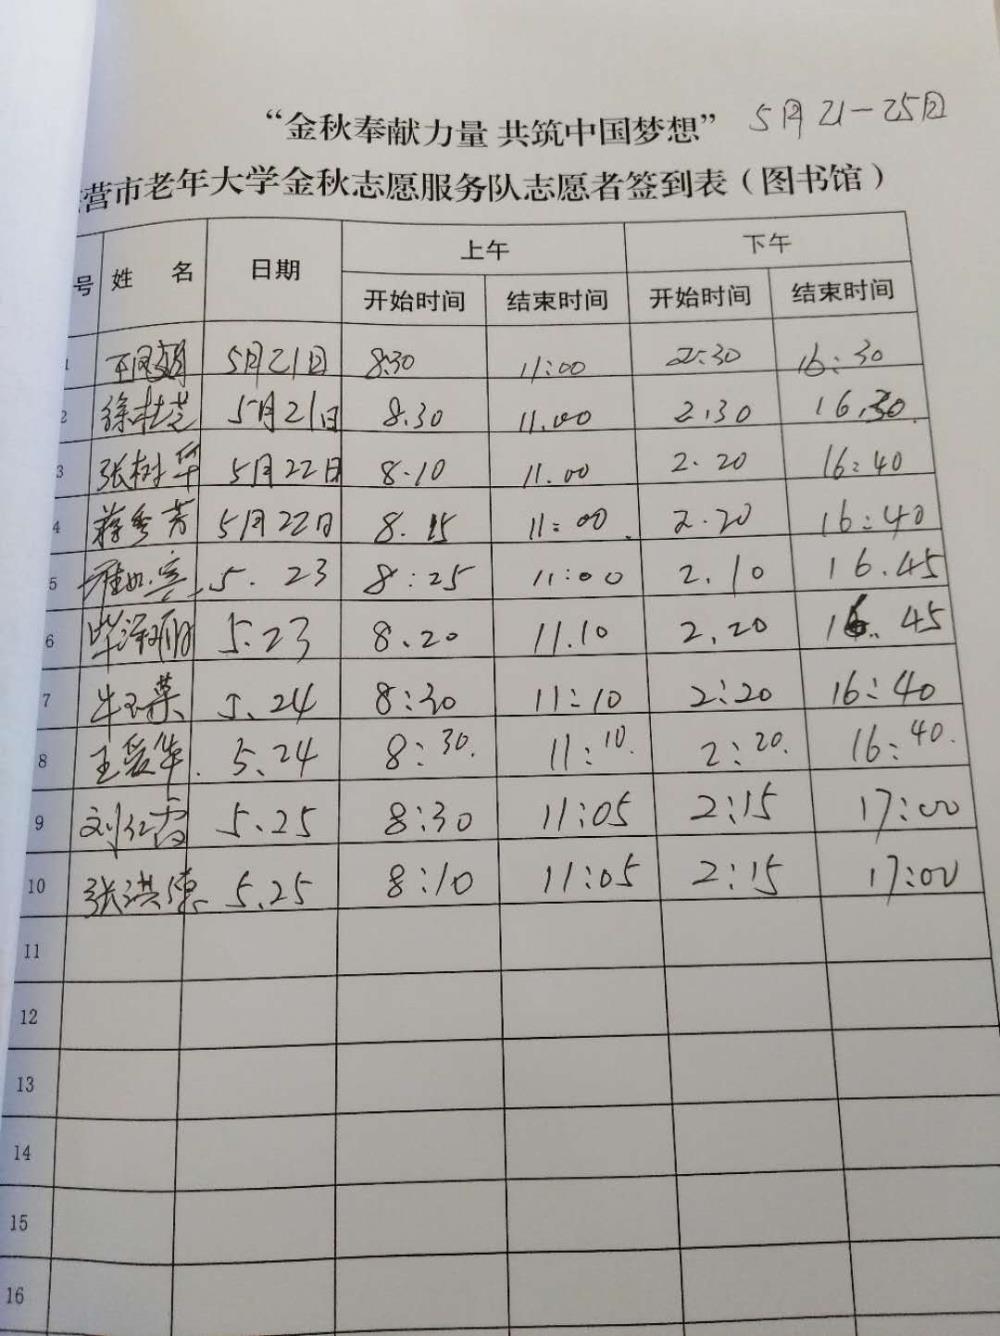 “金秋奉献力量 共筑中国梦想” 5月21-25日
营市老年大学金秋志愿服务队志愿者签到表（图书馆）
号 姓 名 日期 上午 下午
开始时间 结束时间 开始时间 结束时间
1 5月21日 8:30 11:00 2:30 16:30
2 徐桂芝 5月21日 8.30 11.00 2.30 16.30
3 张树华 5月22日 8.10 11.00 2.20 16:40
4 蒋秀芳 5月22日 8.15 11:00 2.20 16:40
5 5.23 8:25 11:00 2.10 16.45
6 5.23 8.20 11.10 2.20 16.45
7 牛玉荣 5.24 8:30 11:10 2:20 16:40
8 王爱华 5.24 8:30. 11:10. 2:20. 16:40.
9 刘仁霞 5.25 8:30 11:05 2:15 17:00
10 张洪 5.25 8:10 11:05 2:15 17:00
11
12
13
14
15
16